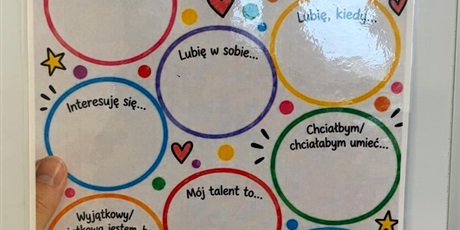 Lubię, kiedy...
Lubię w sobie...
Interesuję się...
Chciałbym/
chciałabym umieć...
Mój talent to...
Wyjątkowy/